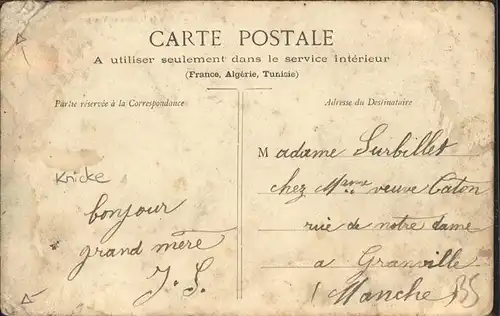 CARTE POSTALE
A utiliser seulement dans le service intérieur
(France, Algérie, Tunisie)
Partie réservée à la Correspondance
Adresse du Destinataire
Knicke
bonjour
grand mère
J. S.
Madame Surbillet
chez Mme veuve Caton
rue de notre dame
a Granville
Manche
BS